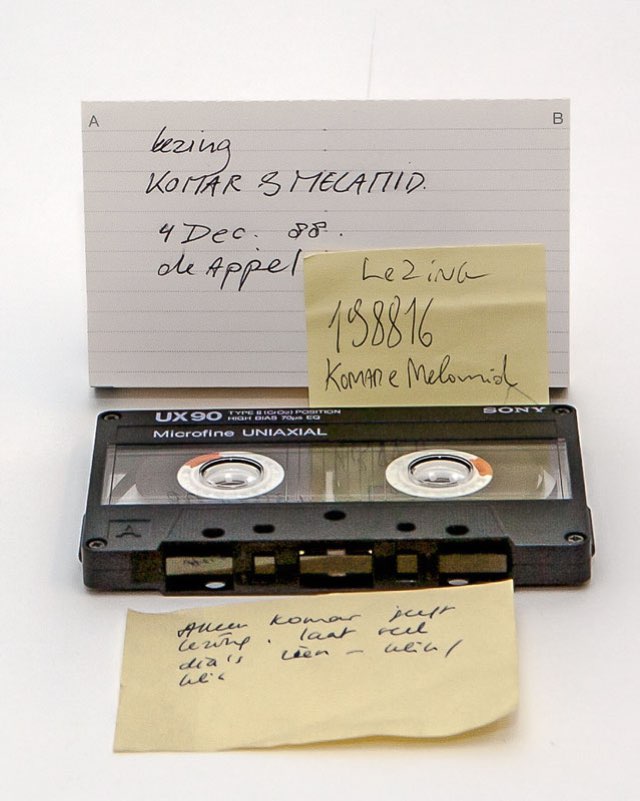 A B
lezing
KOMAR & MELAMID.
4 Dec. 88.
de Appel
Lezing
198816
Komar e Melamid
UX90 TYPE II (CrO2) POSITION
HIGH BIAS 70µs EQ
SONY
Microfine UNIAXIAL
A
Alleen Komar geeft
lezing. laat veel
dia's zien - klik/
klik